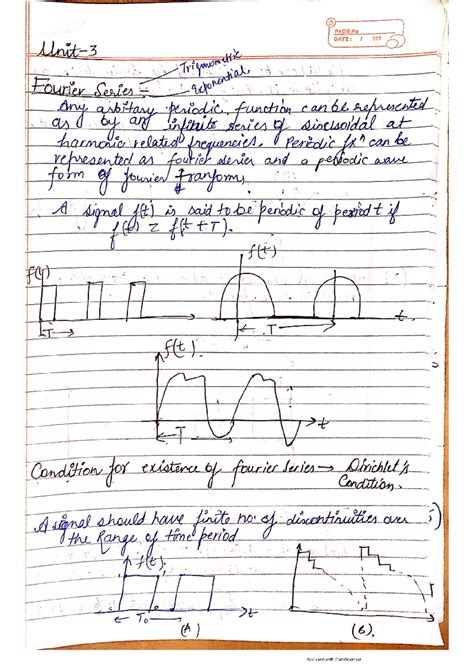 PAGE No
DATE: / 202
Unit-3
Fourier Series - Trigmometric
exponential
Any arbitary periodic function can be represented
as by an infinite series of sincisoidal at
harmonic related frequencies. Periodic fxⁿ can be
represented as fourier series and a periodic wave
form of fourier Tranform,
A signal f(t) is said to be periodic of period t if
f(t) = f(t+T).
f(t)
f(t)
T
T
t
f(t).
T
t
Condition for existence of fourier Series → Dirichlet's
Condition.
i)
A signal should have finite no. of discontinuities over
the Range of time period
f(t)
T₀
t
T
(A)
(B).